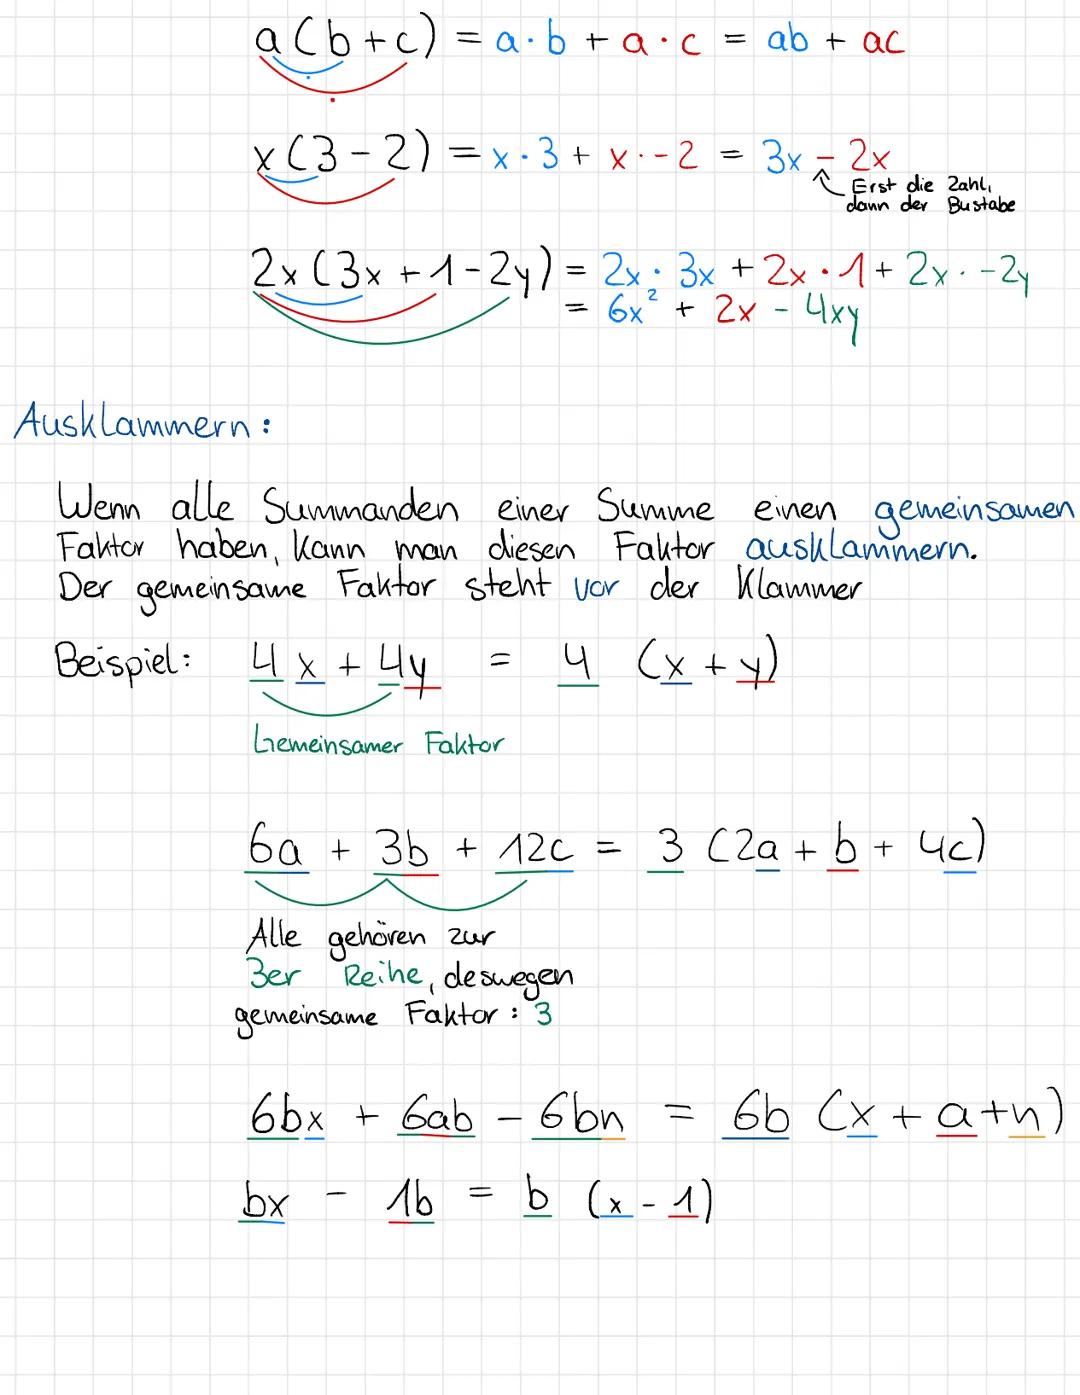 a(b+c) = a·b + a·c = ab + ac
x(3-2) = x·3 + x·-2 = 3x - 2x
Erst die Zahl,
dann der Bustabe
2x(3x+1-2y) = 2x·3x + 2x·1 + 2x·-2y
= 6x² + 2x - 4xy
Ausklammern:
Wenn alle Summanden einer Summe einen gemeinsamen
Faktor haben, kann man diesen Faktor ausklammern.
Der gemeinsame Faktor steht vor der Klammer
Beispiel: 4x + 4y = 4 (x + y)
Gemeinsamer Faktor
6a + 3b + 12c = 3 (2a + b + 4c)
Alle gehören zur
3er Reihe, deswegen
gemeinsame Faktor : 3
6bx + 6ab - 6bn = 6b (x + a + n)
bx - 1b = b (x - 1)